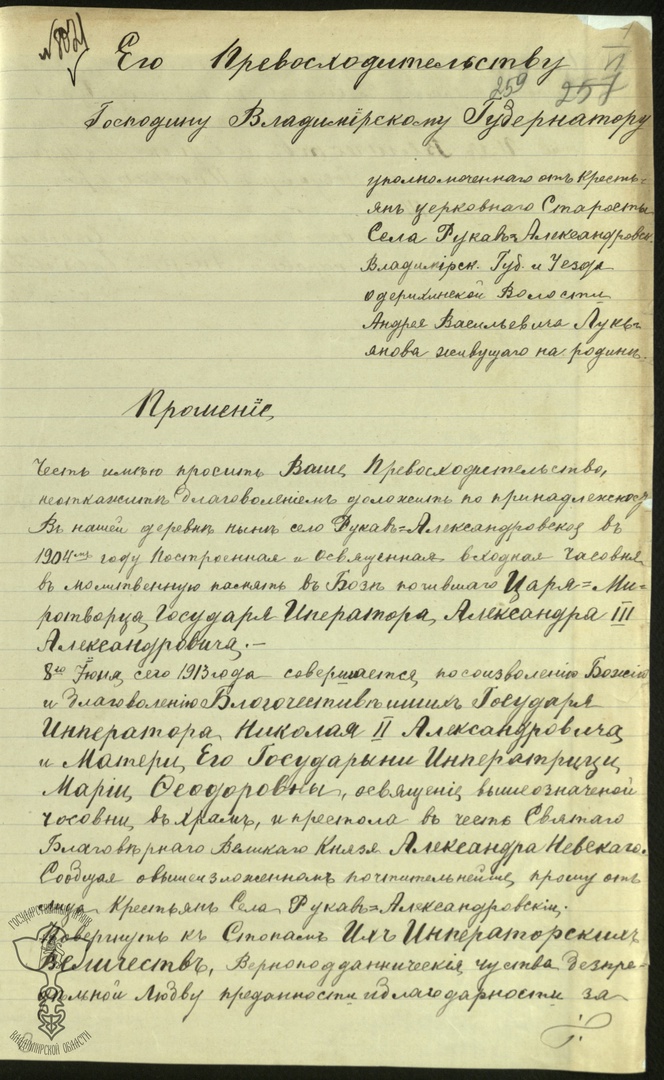 № 8021
Его Превосходительству
259 257
Господину Владимiрскому Губернатору
уполномоченнаго отъ кресть=
янъ церковнаго Старосты
Села Рукавъ=Александровск.
Владимiрск. Губ. и Уезда
одерихинской Волости
Андрея Васильевича Лукъ=
янова живущаго на родинѣ.
Прошенiе
Честь имѣю просить Ваше Превосходительство,
неоткажитѣ благоволенiемъ доложить по принадлежносу
Въ нашей деревнѣ нынѣ село Рукавъ=Александровское въ
1904мъ году Построенная и Освященная входная Часовня
въ молитвенную память въ Бозѣ почившаго Царя=Ми-
ротворца Государя Императора Александра III
Александровича.—
8го Iюня сего 1913 года совершается посоизволенiю Божiю
и Благоволенiю Благочестивѣишихъ Государя
Императора Николая II Александровича
и Матери Его Государыни Императрицы
Марiи Феодоровны, освященiе вышеозначеной
Часовни въ храмъ, и престола въ честь Святаго
Благовѣрнаго Великаго Князя Александра Невскаго.
Сообщая овышеизложенномъ почтительнейше прошу отъ
лица Крестьянъ Села Рукавъ=Александровскiи.
Повергнуть къ Стопамъ Ихъ Императорскихъ
Величествъ, Верноподданническiя чуства безпре-
дѣльной Любву преданности и благодарности за
ГОСУДАРСТВЕННЫЙ АРХИВ
ВЛАДИМИРСКОЙ ОБЛАСТИ